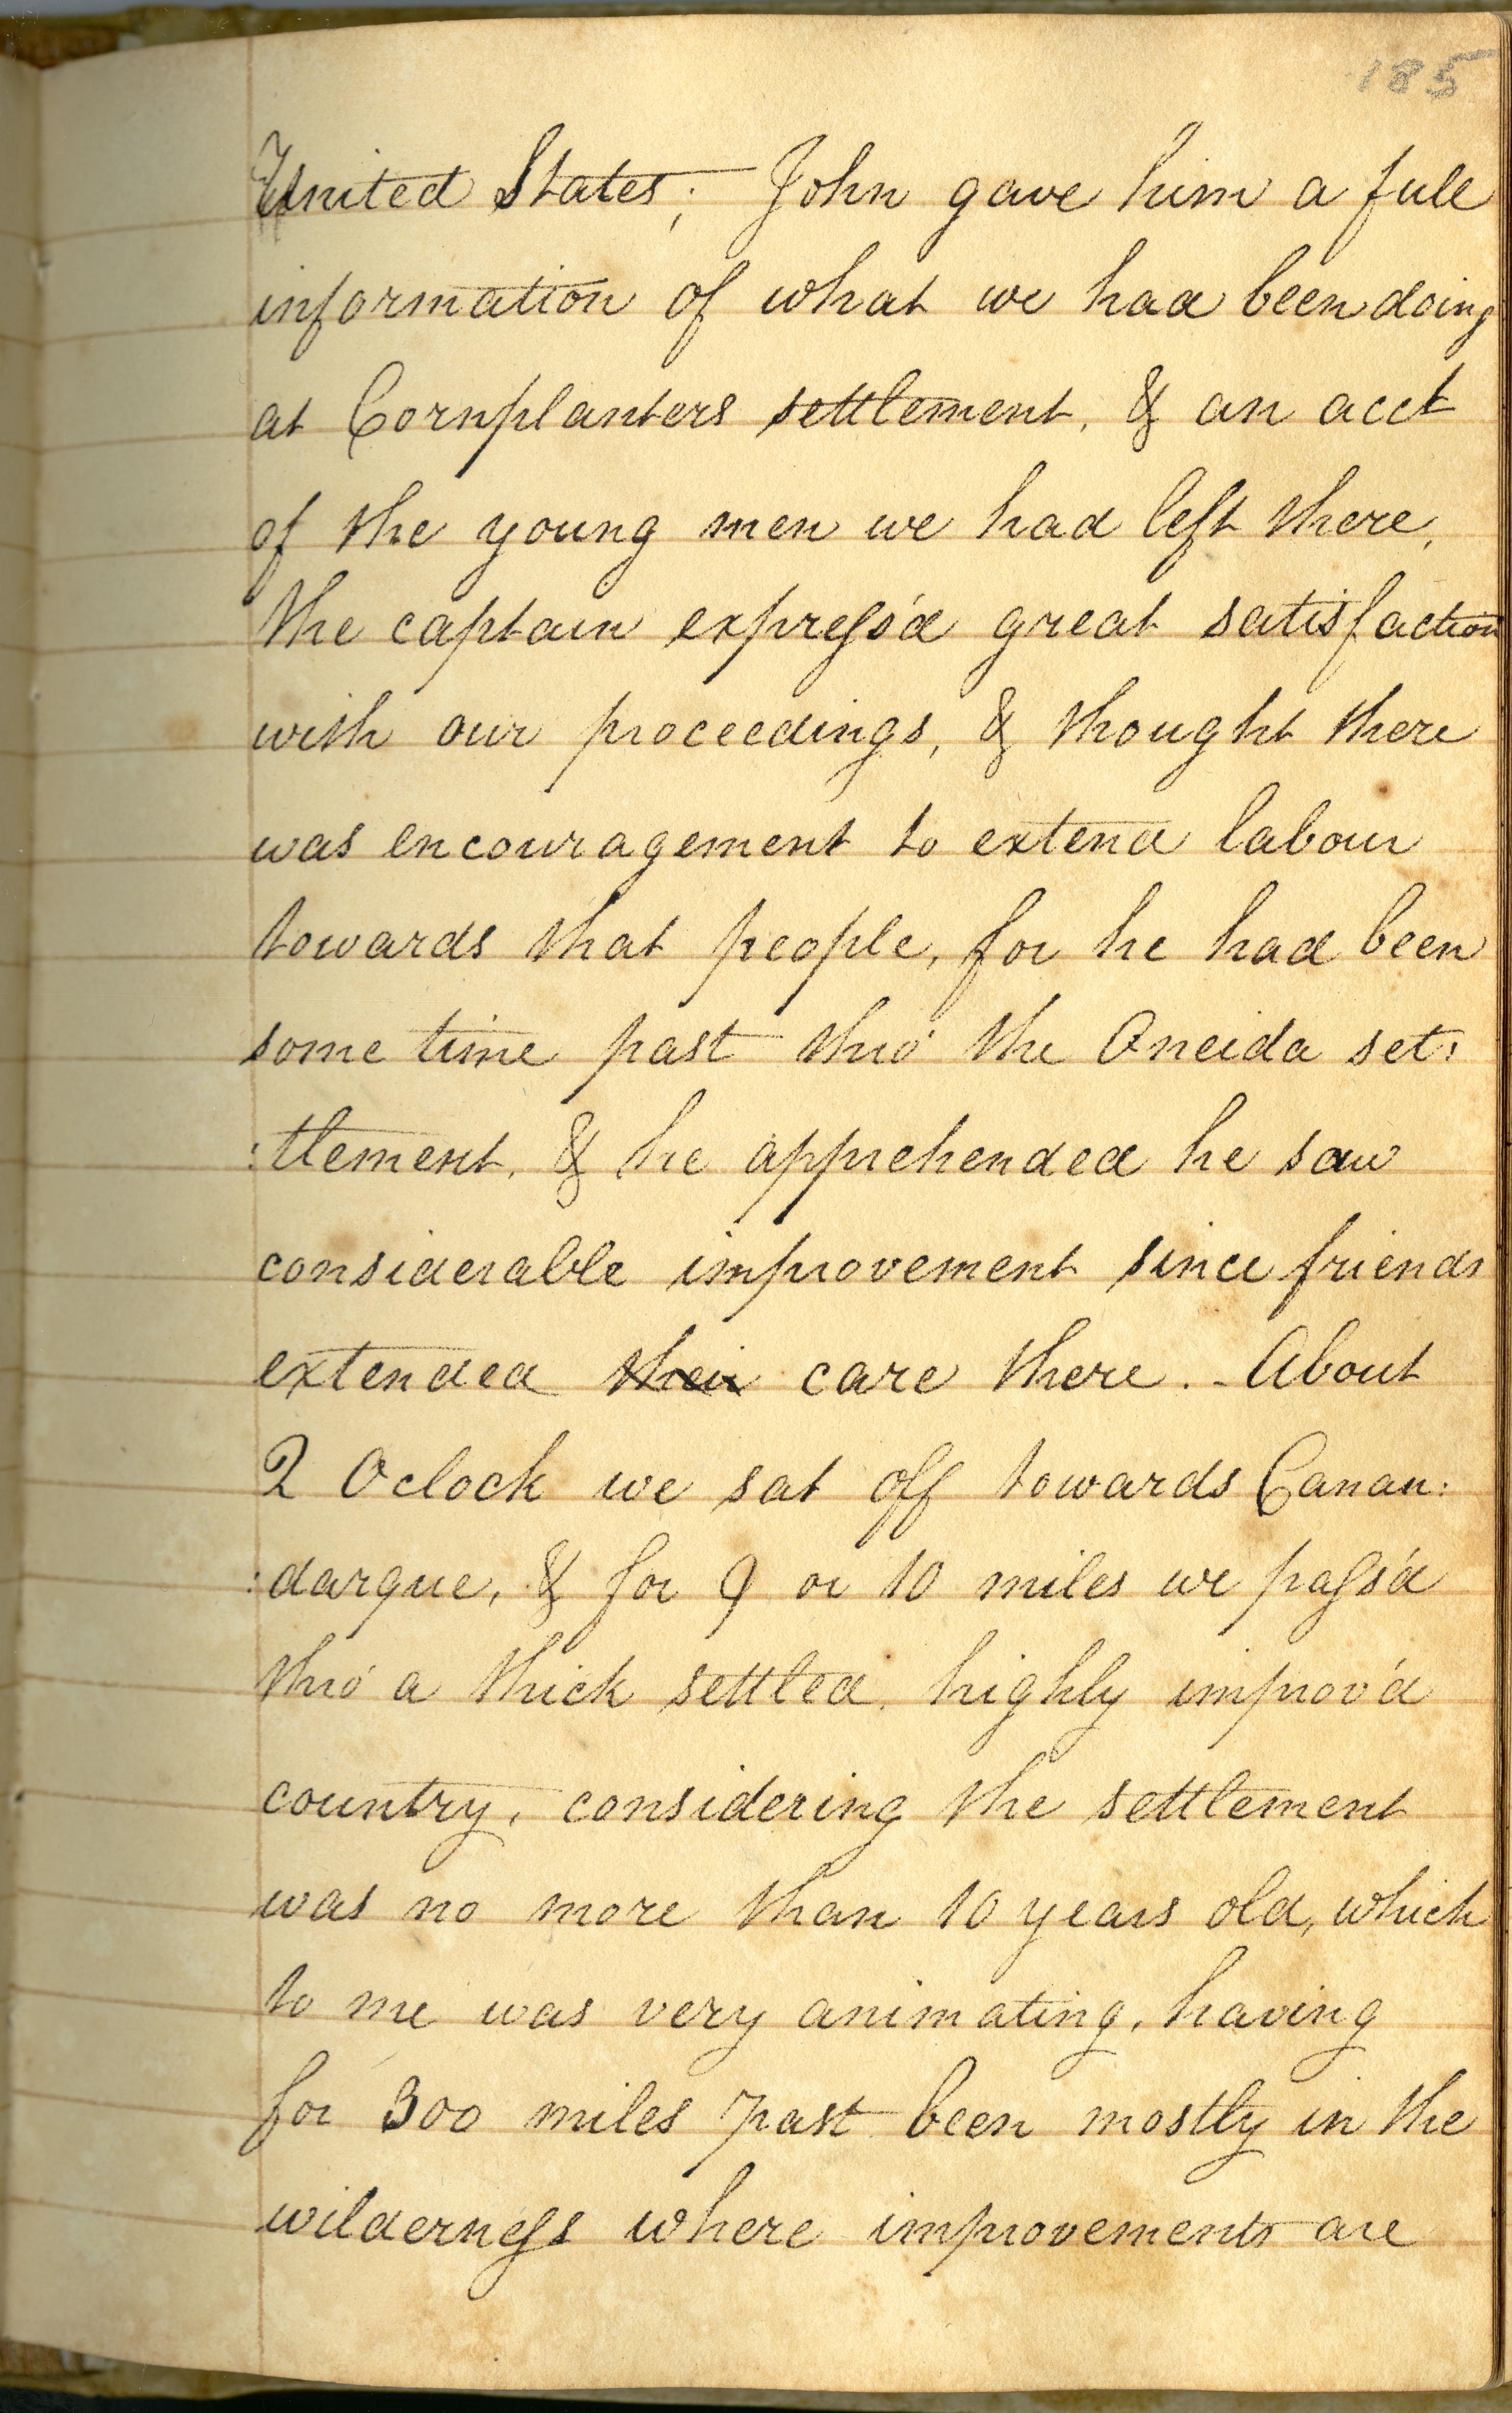 185
United States; John gave him a full
information of what we had been doing
at Cornplanters settlement, & an acct
of the young men we had left there,
the captain expreſs'd great satisfaction
with our proceedings, & thought there
was encouragement to extend labour
towards that people, for he had been
some time past thro' the Oneida set:
:tlement, & he apprehended he saw
considerable improvement since friends
extended their care there. - About
2 Oclock we sat off towards Canan:
:darque, & for 9 or 10 miles we paſs'd
thro' a thick settled, highly improv'd
country, considering the settlement
was no more than 10 years old, which
to me was very animating, having
for 300 miles past been mostly in the
wilderneſs where improvements are